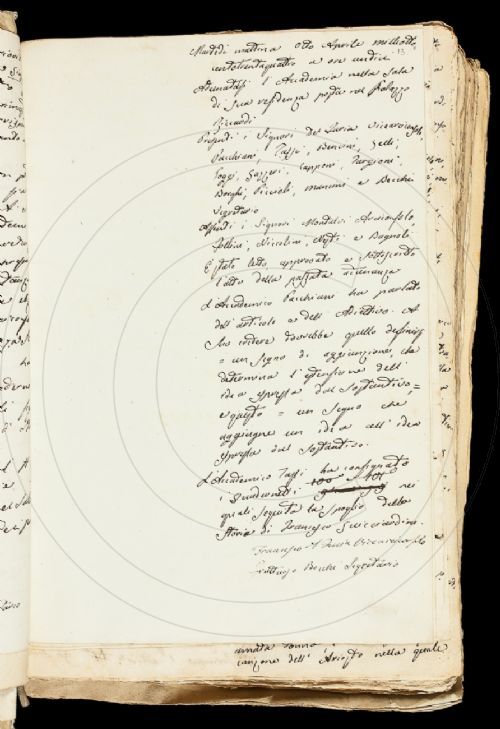 Martedì mattina Otto Aprile milleotto
centotrentaquattro a ore undici
13
Adunatasi l'Accademia nella Sala
di sua residenza posta nel Palazzo
Riccardi
Presenti i Signori Del Furia Vicearciconsolo
Pacchiani, Tassi, Bencini, Zelli,
Poggi, Gazzeri, Capponi, Targioni,
Borghi, Piccioli, Mannini e Becchi
Segretario
Assenti i Signori Montalvi Arciconsolo
Collini, Niccolini, Nesti e Bagnoli
È stato letto, approvato e sottoscritto
l'atto della passata adunanza
L'Accademico Pacchiani ha parlato
dell'articolo e dell'Adiettivo. A
suo credere dovrebbe quello definirsi
= un segno di aggiunzione, che
determina l'estensione dell'
idea espressa dal Sostantivo =
e questo = un Segno che
aggiugne un idea all'idea
espressa dal Sostantivo.
L'Accademico Tassi ha consegnato
i Quadernetti nei
quali seguita lo spoglio della
Storia di Francesco Guicciardini.
Francesco Del Furia Vicearciconsolo
Fruttuoso Becchi Segretario
canzone dell'Ariosto nella quale